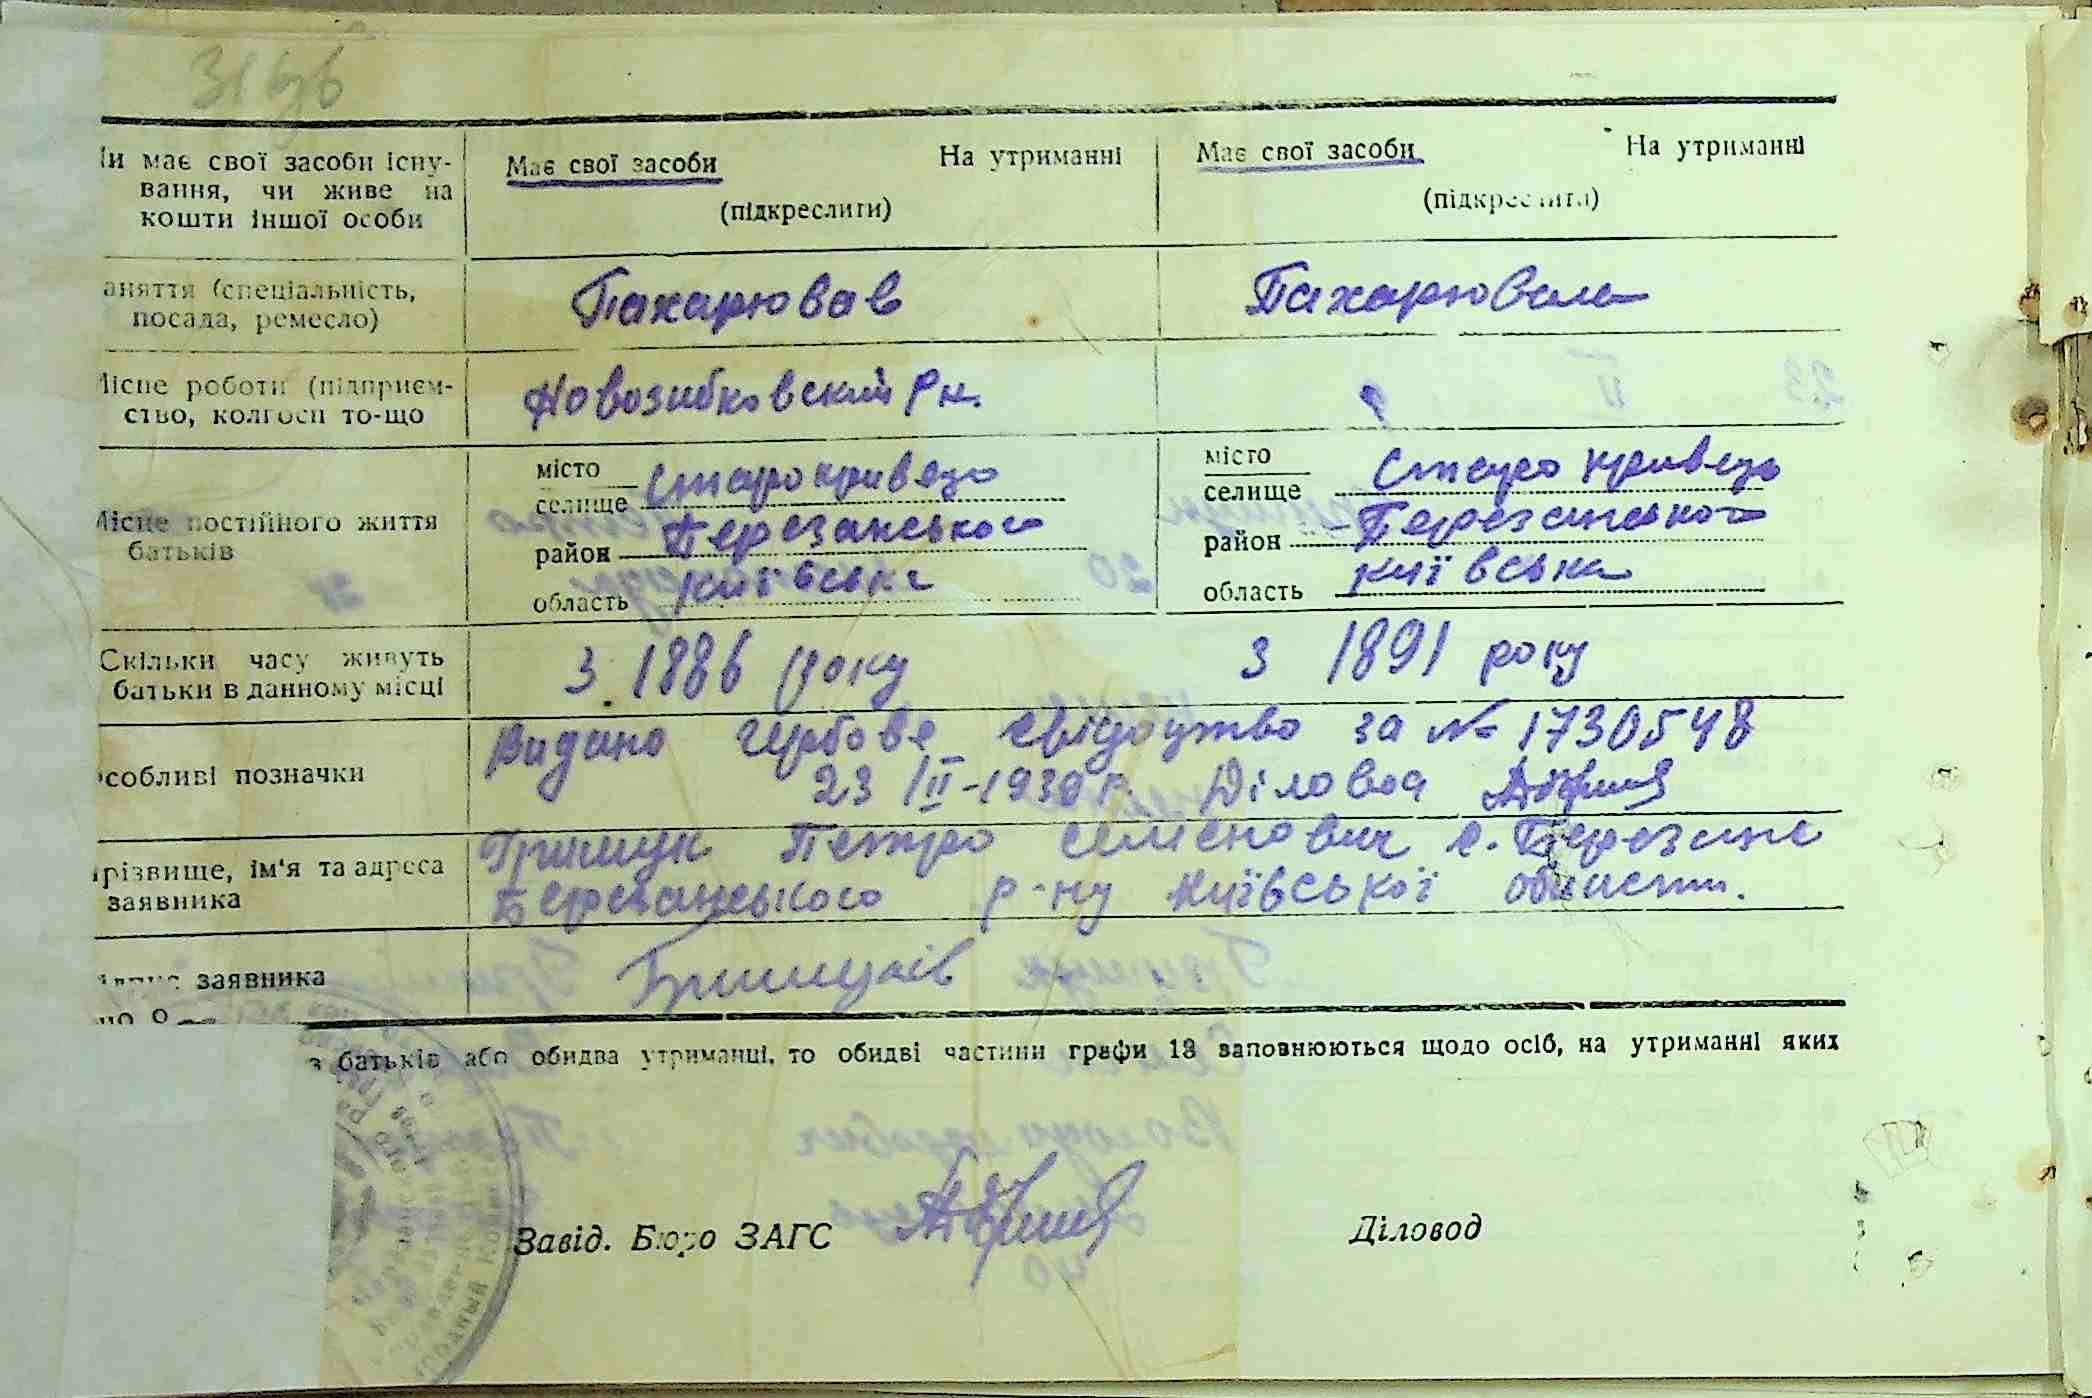 31 зв
и має свої засоби існу-
вання, чи живе на
кошти іншої особи
Має свої засоби На утриманні
(підкреслити)
Має свої засоби На утриманні
(підкреслити)
аняття (спеціальність,
посада, ремесло)
Пахарював
Пахарювала
Місце роботи (підприєм-
ство, колгосп то-що
Новозибковский Рн.
?
Місце постійного життя
батьків
місто
селище Старокривець
район Березанського
область Київська
місто
селище Старо кривець
район Березанського
область Київська
Скільки часу живуть
батьки в данному місці
З 1886 року
з 1891 року
особливі позначки
Видано гербове свідоцтво за № 1730548
23/II-1939 р. Діловод
різвище, ім'я та адреса
заявника
Грищук Петро Семенович с. Березань
Березанського р-ну Київської області.
заявника
з батьків або обидва утриманці, то обидві частини графи 13 заповнюються щодо осіб, на утриманні яких
Завід. Бюро ЗАГС
Діловод